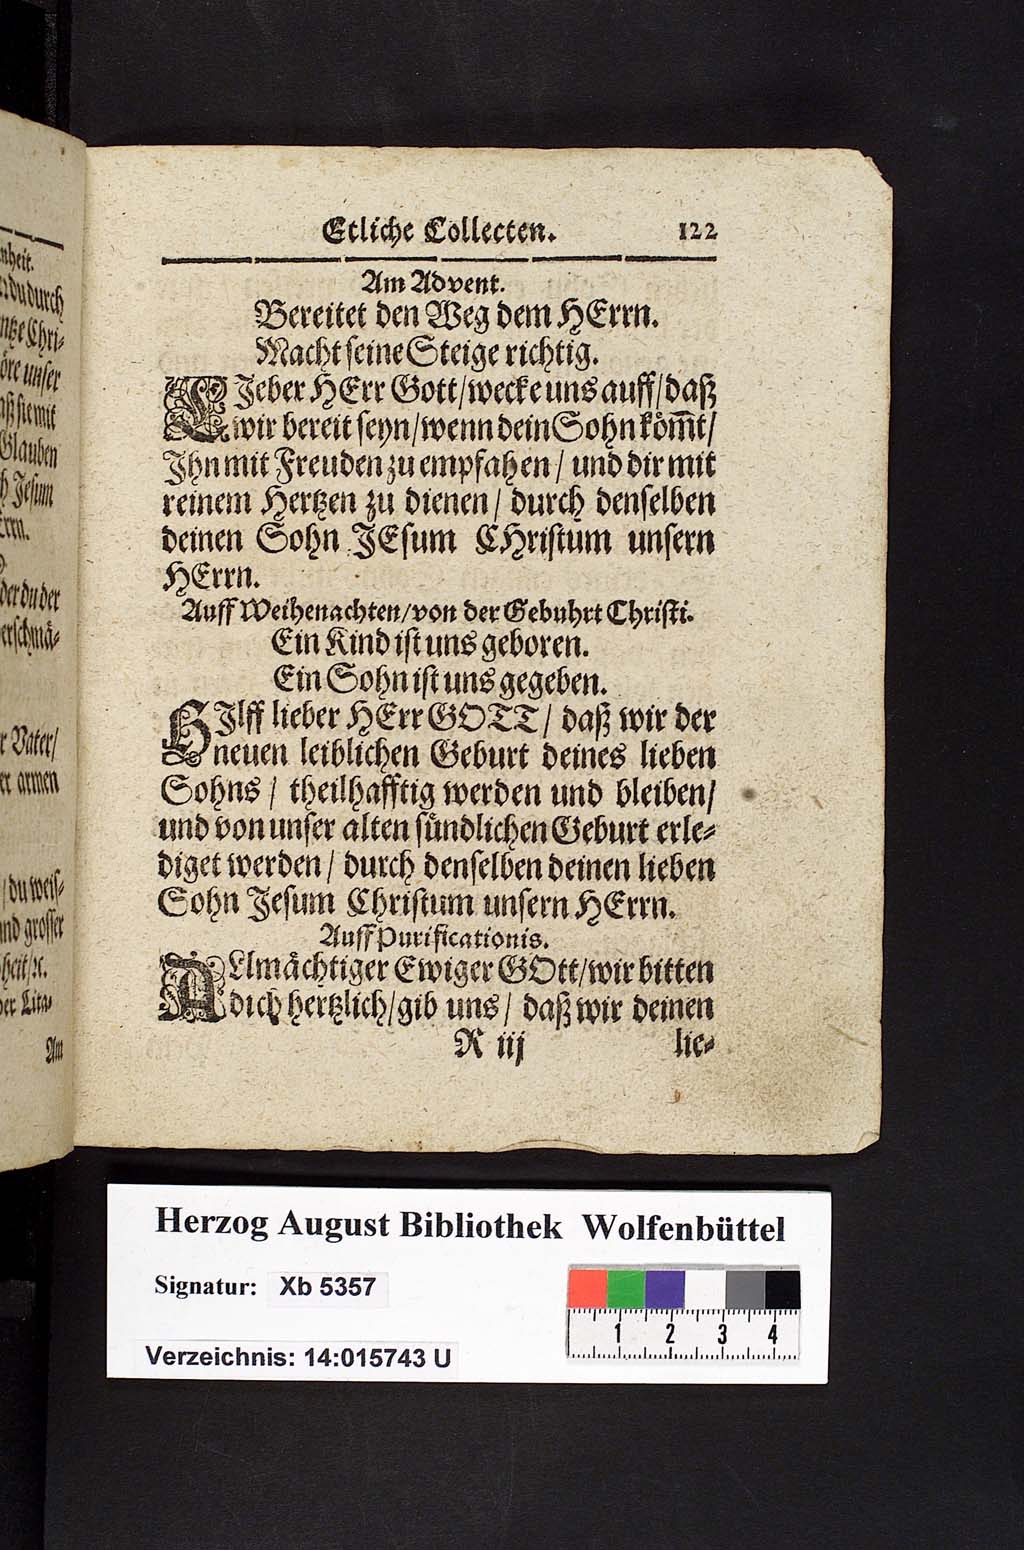 nheit.
du durch
ntze Chri-
öre unser
aß sie mit
Glauben
h Jesum
Errn.
der du der
erschmä-
r Vater/
er armen
/ du weis-
und grosser
heit/ꝛc.
der Lita-
Am
Etliche Collecten. 122
Am Advent.
Bereitet den Weg dem HErrn.
Macht seine Steige richtig.
LJeber HErr Gott/wecke uns auff/daß
wir bereit seyn/wenn dein Sohn köm̃t/
Jhn mit Freuden zu empfahen/ und dir mit
reinem Hertzen zu dienen/ durch denselben
deinen Sohn JEsum CHristum unsern
HErrn.
Auff Weihenachten/von der Gebuhrt Christi.
Ein Kind ist uns geboren.
Ein Sohn ist uns gegeben.
HJlff lieber HErr GOTT/ daß wir der
neuen leiblichen Geburt deines lieben
Sohns/ theilhafftig werden und bleiben/
und von unser alten sündlichen Geburt erle-
diget werden/ durch denselben deinen lieben
Sohn Jesum Christum unsern HErrn.
Auff Purificationis.
ALlmächtiger Ewiger GOtt/wir bitten
dich hertzlich/gib uns/ daß wir deinen
R iij lie-
Herzog August Bibliothek Wolfenbüttel
Signatur: Xb 5357
Verzeichnis: 14:015743 U
1 2 3 4